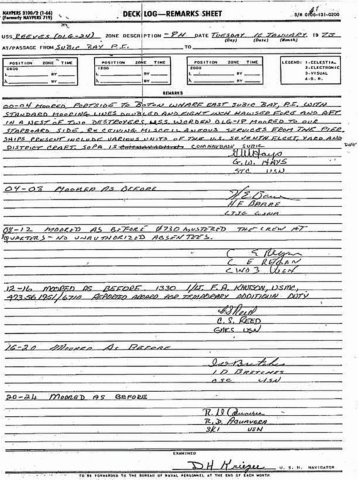 NAVPERS 3100/2 (7-66)
(Formerly NAVPERS 719)
DECK LOG—REMARKS SHEET
S/N 0106-131-0200
USS REEVES (DLG-24) ZONE DESCRIPTION -8H DATE TUESDAY 16 JANUARY 19 73
(Day) (Date) (Month)
AT/PASSAGE FROM SUBIC BAY P.I. TO
POSITION ZONE TIME
0800
L BY
λ BY
POSITION ZONE TIME
1200
L BY
λ BY
POSITION ZONE TIME
2000
L BY
λ BY
LEGEND: 1-CELESTIAL
2-ELECTRONIC
3-VISUAL
4-D.R.
REMARKS
00-04 MOORED PORTSIDE TO BOTON WHARF EAST SUBIC BAY, P.I. WITH
STANDARD MOORING LINES DOUBLED AND EIGHT INCH HAWSER FORE AND AFT
IN A NEST OF TWO DESTROYERS, USS WORDEN DLG-18 MOORED TO OUR
STARBOARD SIDE, RECEIVING MISCELLANEOUS SERVICES FROM THE PIER.
SHIPS PRESENT INCLUDE VARIOUS UNITS OF THE U.S. SEVENTH FLEET, YARD AND
DISTRICT CRAFT. SOPA IS
G.W. HAYS
USN
04-08 MOORED AS BEFORE
08-12 MOORED AS BEFORE 0730 MUSTERED THE CREW AT
QUARTERS - NO UNAUTHORIZED ABSENTEES.
C E REGAN
CWO3 USN
12-16 MOORED AS BEFORE. 1330 1/LT. F.A. USMC,
REPORTED ABOARD FOR TEMPORARY ADDITIONAL DUTY
C. S. REED
USN
16-20 MOORED AS BEFORE
USN
20-24 MOORED AS BEFORE
R. D. AQUAVERA
SK1 USN
EXAMINED
U. S. N. NAVIGATOR
TO BE FORWARDED TO THE BUREAU OF NAVAL PERSONNEL AT THE END OF EACH MONTH